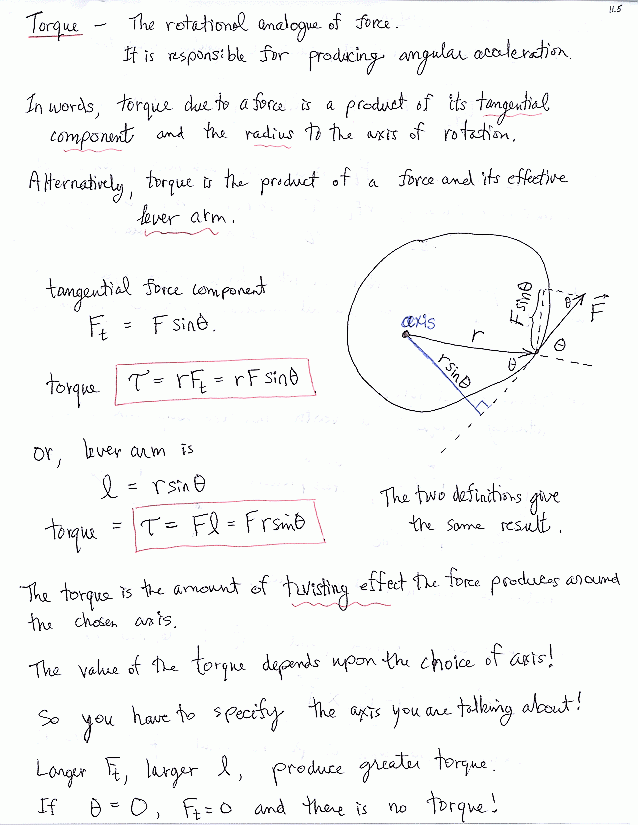 11.5
Torque – The rotational analogue of force.
It is responsible for producing angular acceleration.
In words, torque due to a force is a product of its tangential
component and the radius to the axis of rotation.
Alternatively, torque is the product of a force and its effective
lever arm.
tangential force component
Fₜ = F sinθ.
torque τ = rFₜ = rF sinθ
or, lever arm is
ℓ = r sinθ
torque = τ = Fℓ = Fr sinθ
axis
r
r sinθ
θ
F sinθ
θ
F⃗
θ
The two definitions give
the same result.
The torque is the amount of twisting effect the force produces around
the chosen axis.
The value of the torque depends upon the choice of axis!
So you have to specify the axis you are talking about!
Larger Fₜ, larger ℓ, produce greater torque.
If θ = 0, Fₜ = 0 and there is no torque!